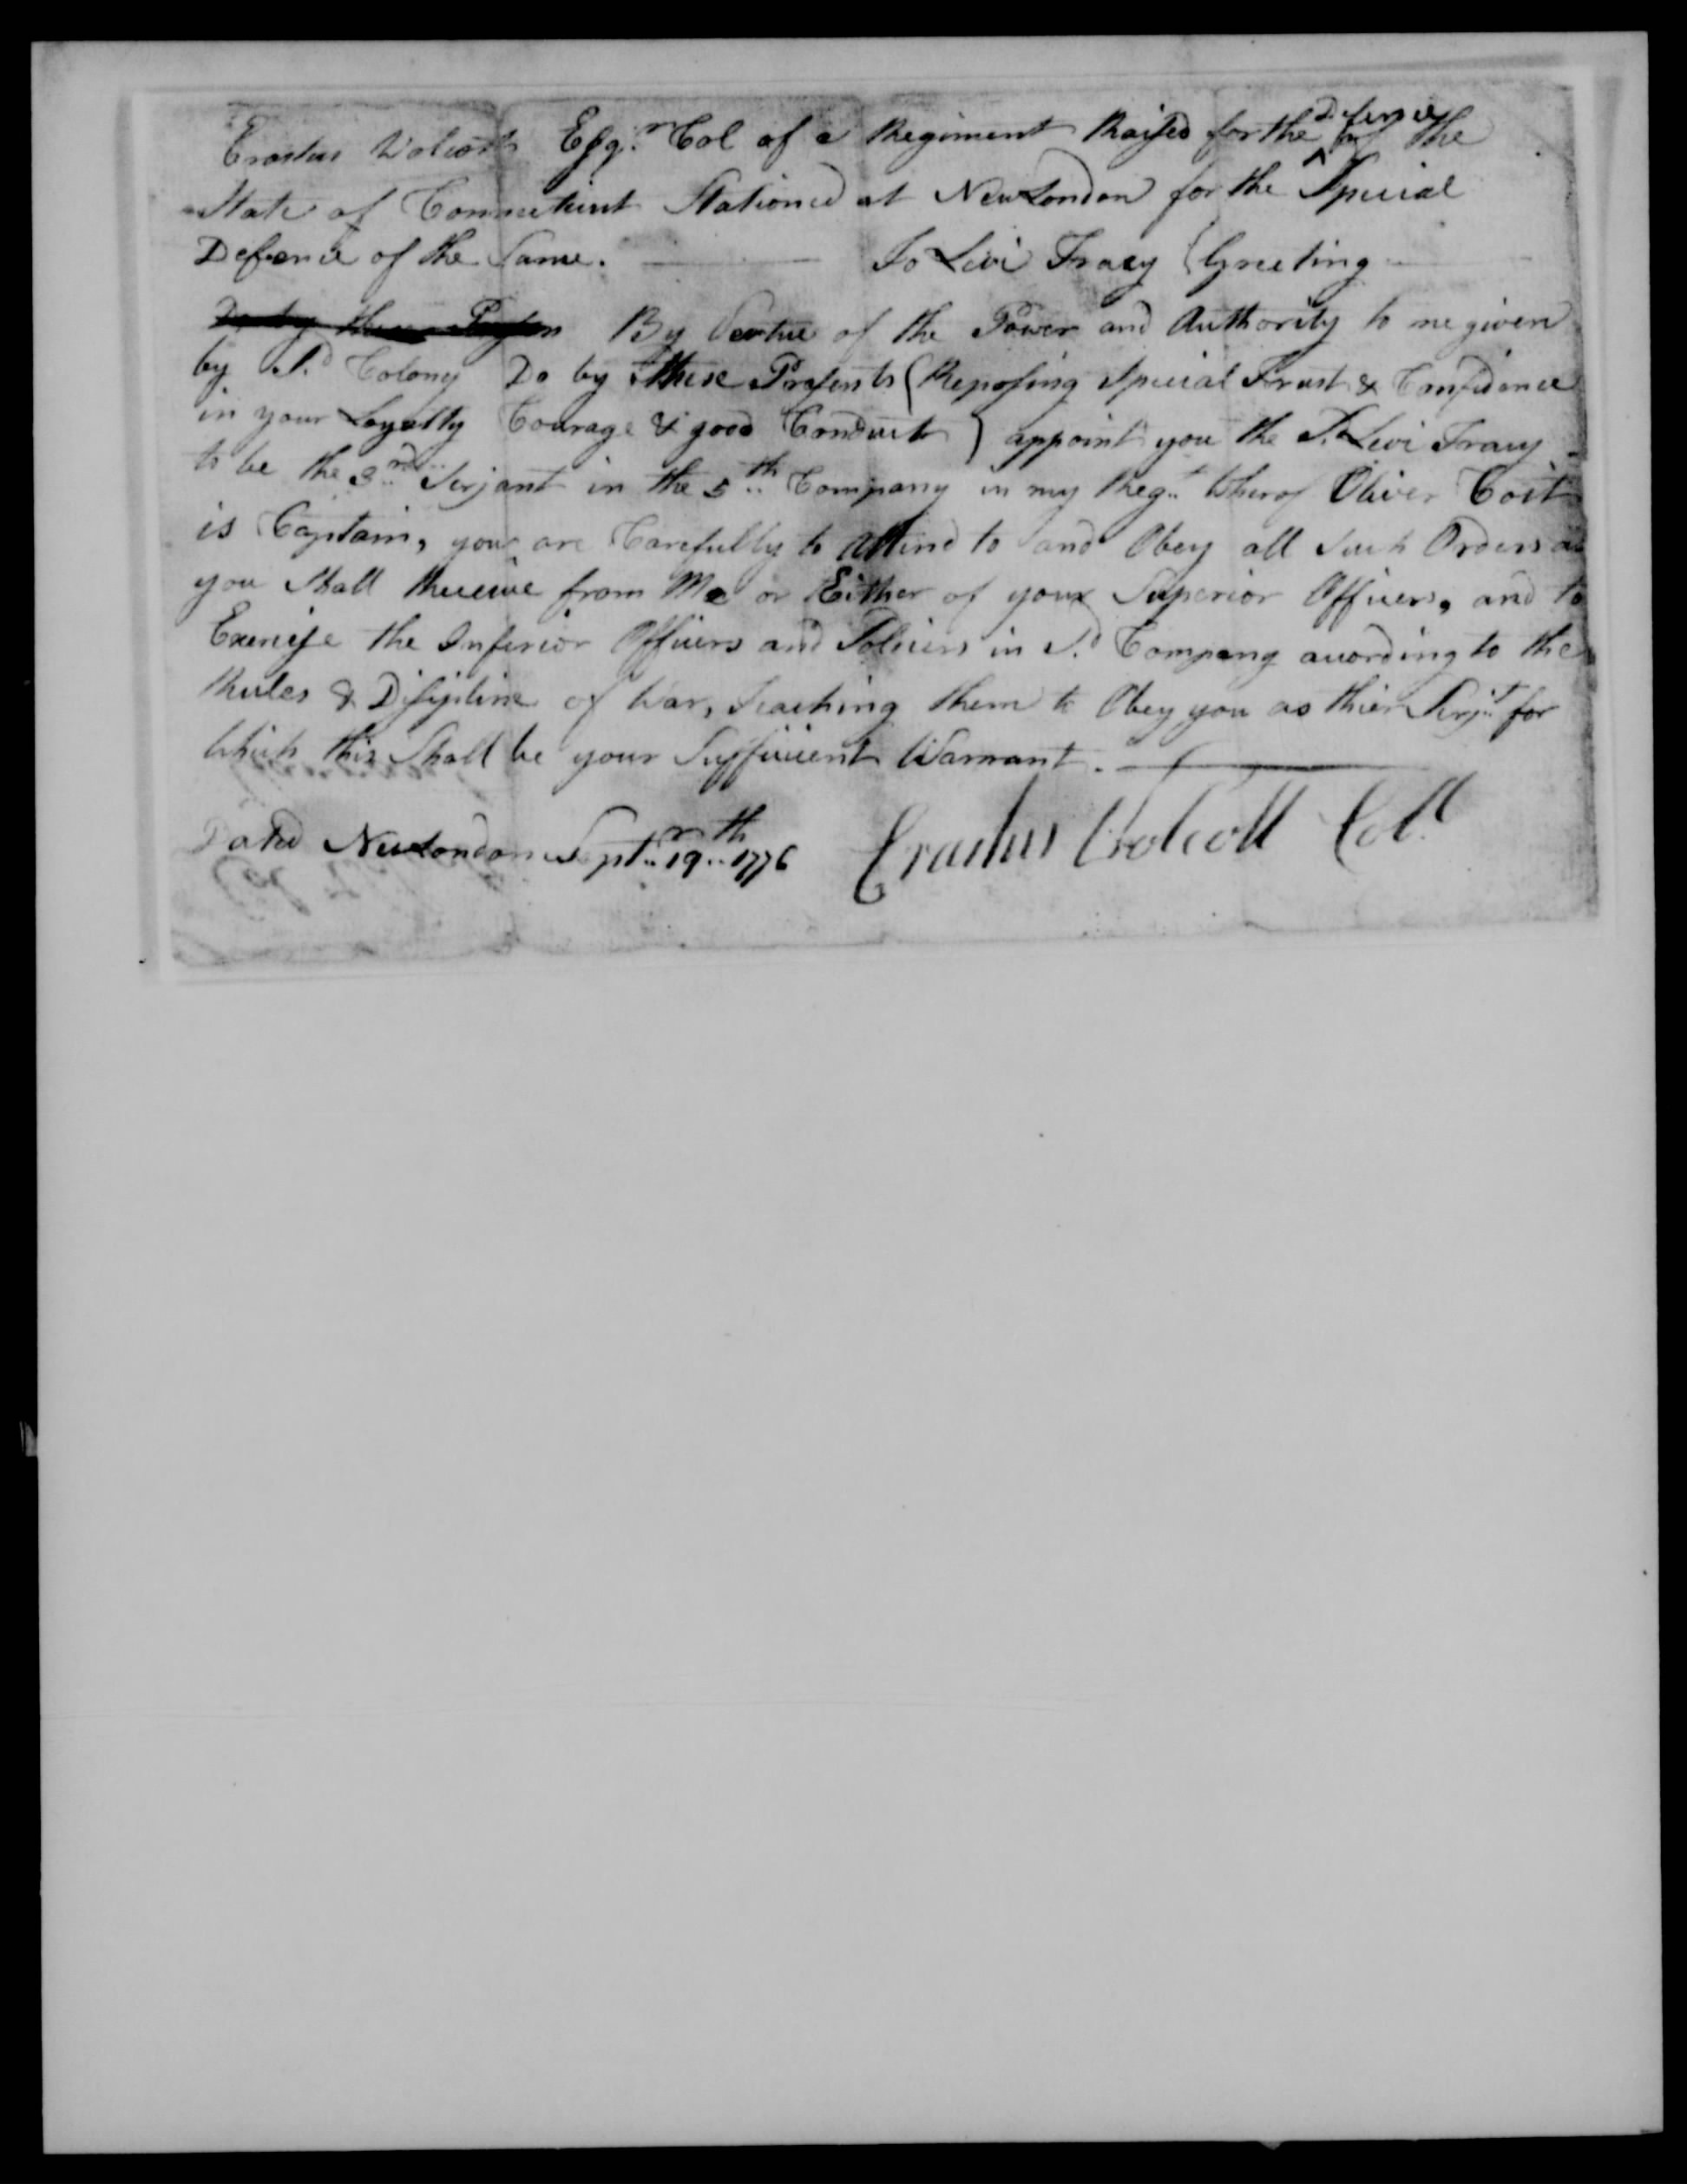 Erastus Wolcott Esqr. Col of a Regiment Raised for the Defence of the
State of Connecticut Stationed at New London for the Special
Defence of the Same. To Levi Tracy {Greeting
Do by these Presen By Vertue of the Power and Authority to me given
by Sd. Colony Do by these Presents (Reposing Special Trust & Confidence
in your Loyalty Courage & good Conduct) appoint you the Sd. Levi Tracy
to be the 3rd Serjant in the 5th Company in my Regt. Wherof Oliver Coit
is Captain, you are Carefully to Attend to and Obey all such Orders as
you Shall Receive from Me or Either of your Superior Officers, and to
Exercise the Inferior Officers and Soldiers in Sd. Company according to the
Rules & Disipline of War, Teaching them to Obey you as thier Serjt. for
Which this Shall be your Sufficient Warrant.
Dated New London Septr. 19th 1776 Erastus Wolcott Coll.